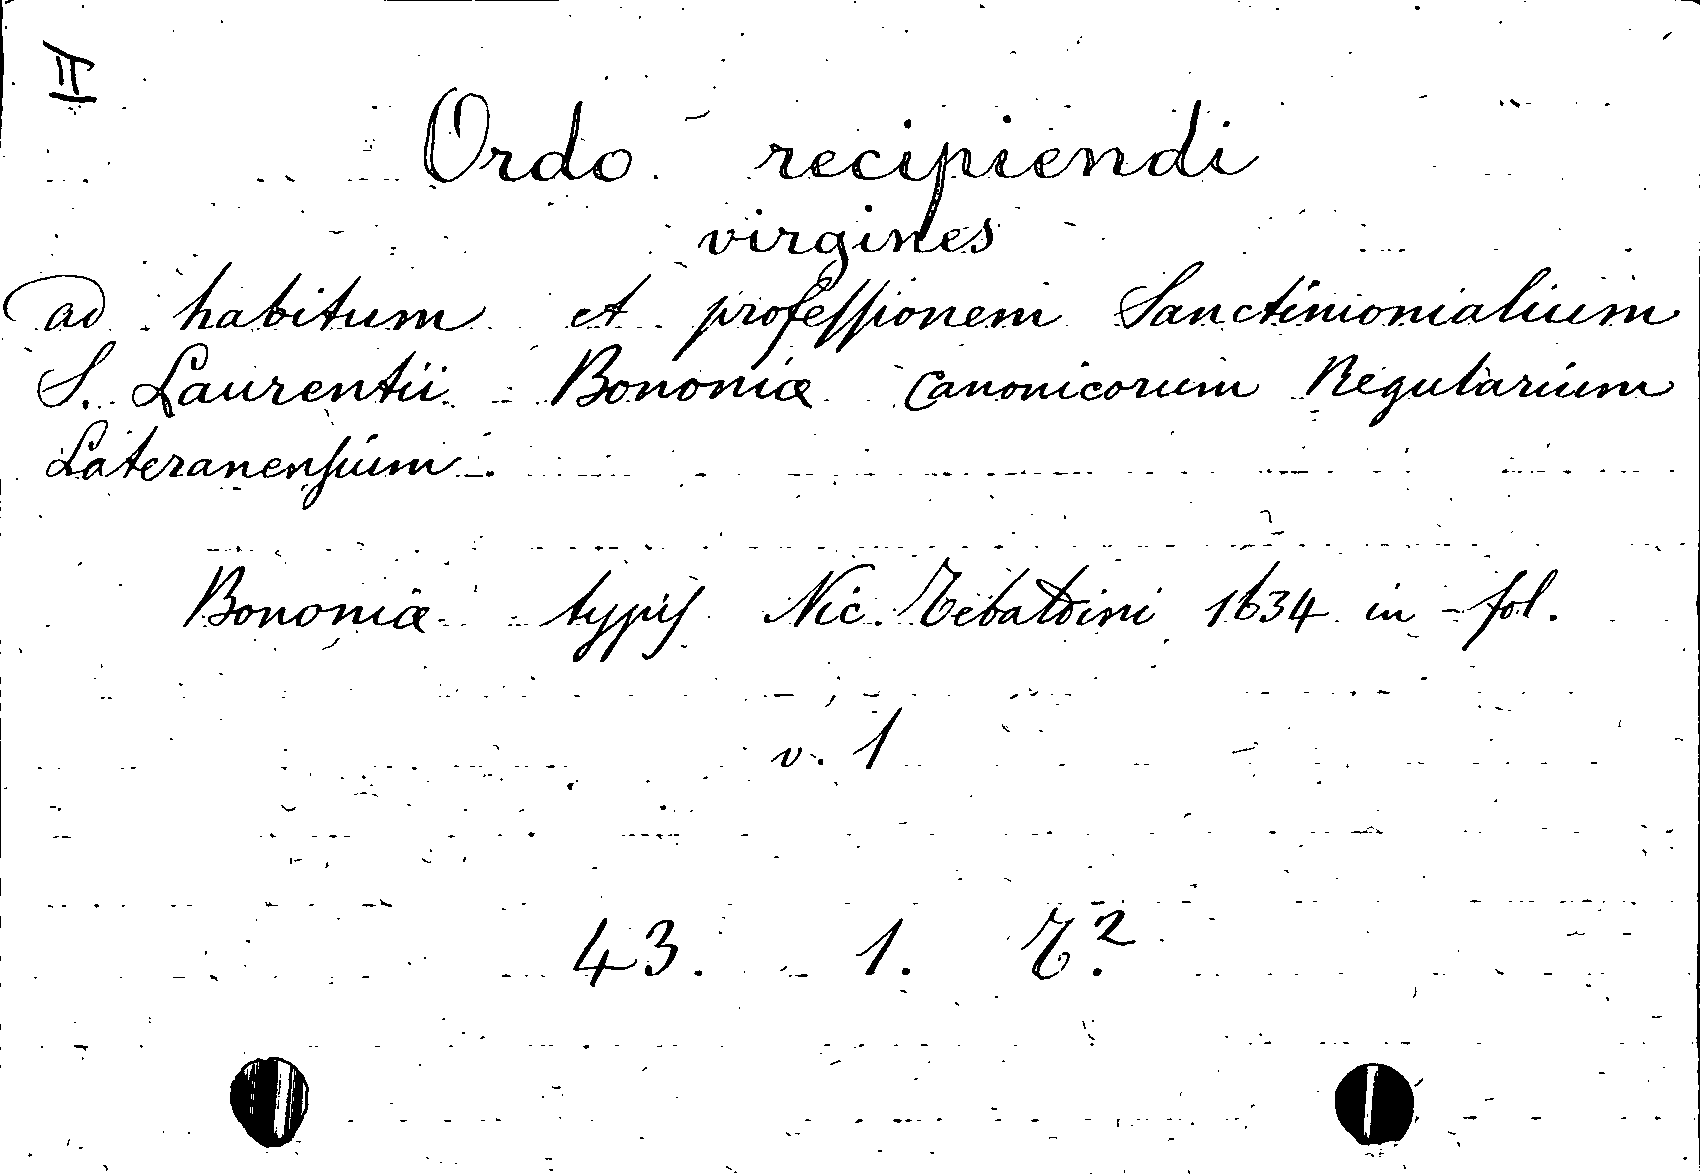 II
Ordo recipiendi
virgines
ad habitum et professionem Sanctimonialium
S. Laurentii Bononiæ Canonicorum Regularium
Lateranensium.
Bononiæ typis Nic. Tebaldini 1634 in fol.
v. 1
43. 1. T.²